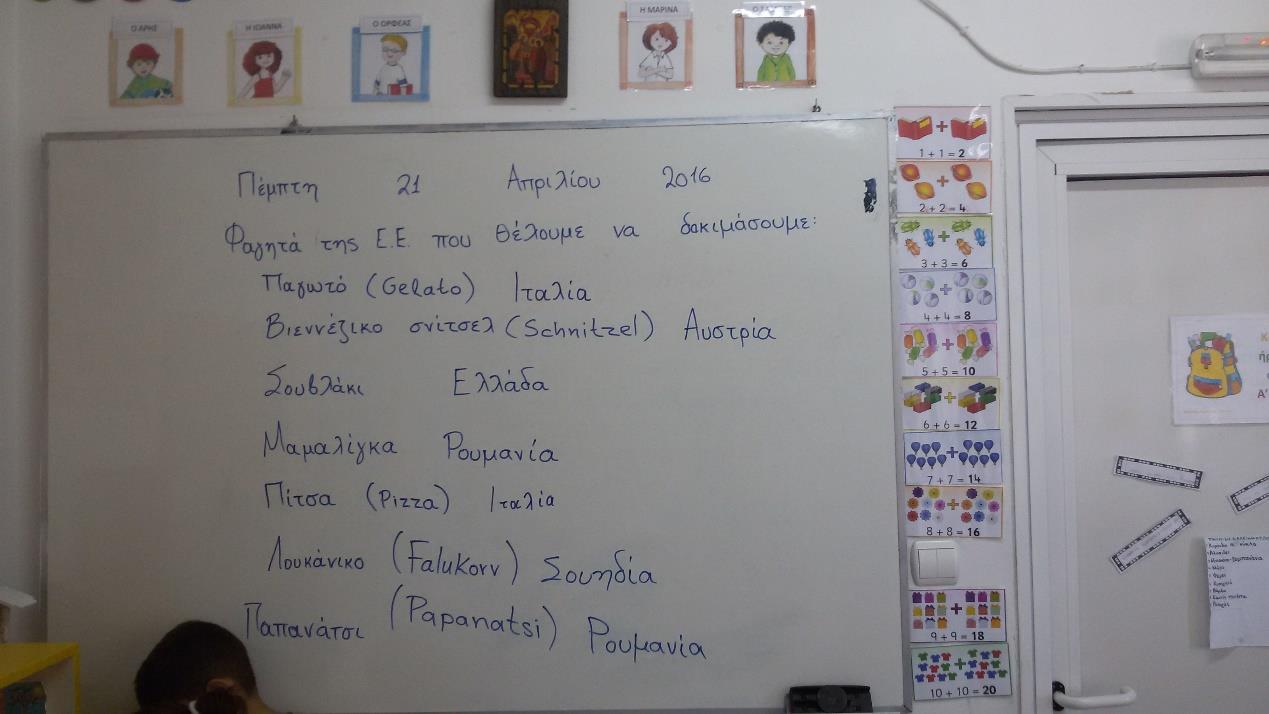 Ο ΑΡΗΣ
Η ΙΩΑΝΝΑ
Ο ΟΡΦΕΑΣ
Η ΜΑΡΙΝΑ
Πέμπτη 21 Απριλίου 2016
Φαγητά της Ε.Ε. που θέλουμε να δοκιμάσουμε:
Παγωτό (Gelato) Ιταλία
Βιεννέζικο σνίτσελ (Schnitzel) Αυστρία
Σουβλάκι Ελλάδα
Μαμαλίγκα Ρουμανία
Πίτσα (Pizza) Ιταλία
Λουκάνικο (Falukorv) Σουηδία
Παπανάτσι (Papanatsi) Ρουμανία
1 + 1 = 2
2 + 2 = 4
3 + 3 = 6
4 + 4 = 8
5 + 5 = 10
6 + 6 = 12
7 + 7 = 14
8 + 8 = 16
9 + 9 = 18
10 + 10 = 20